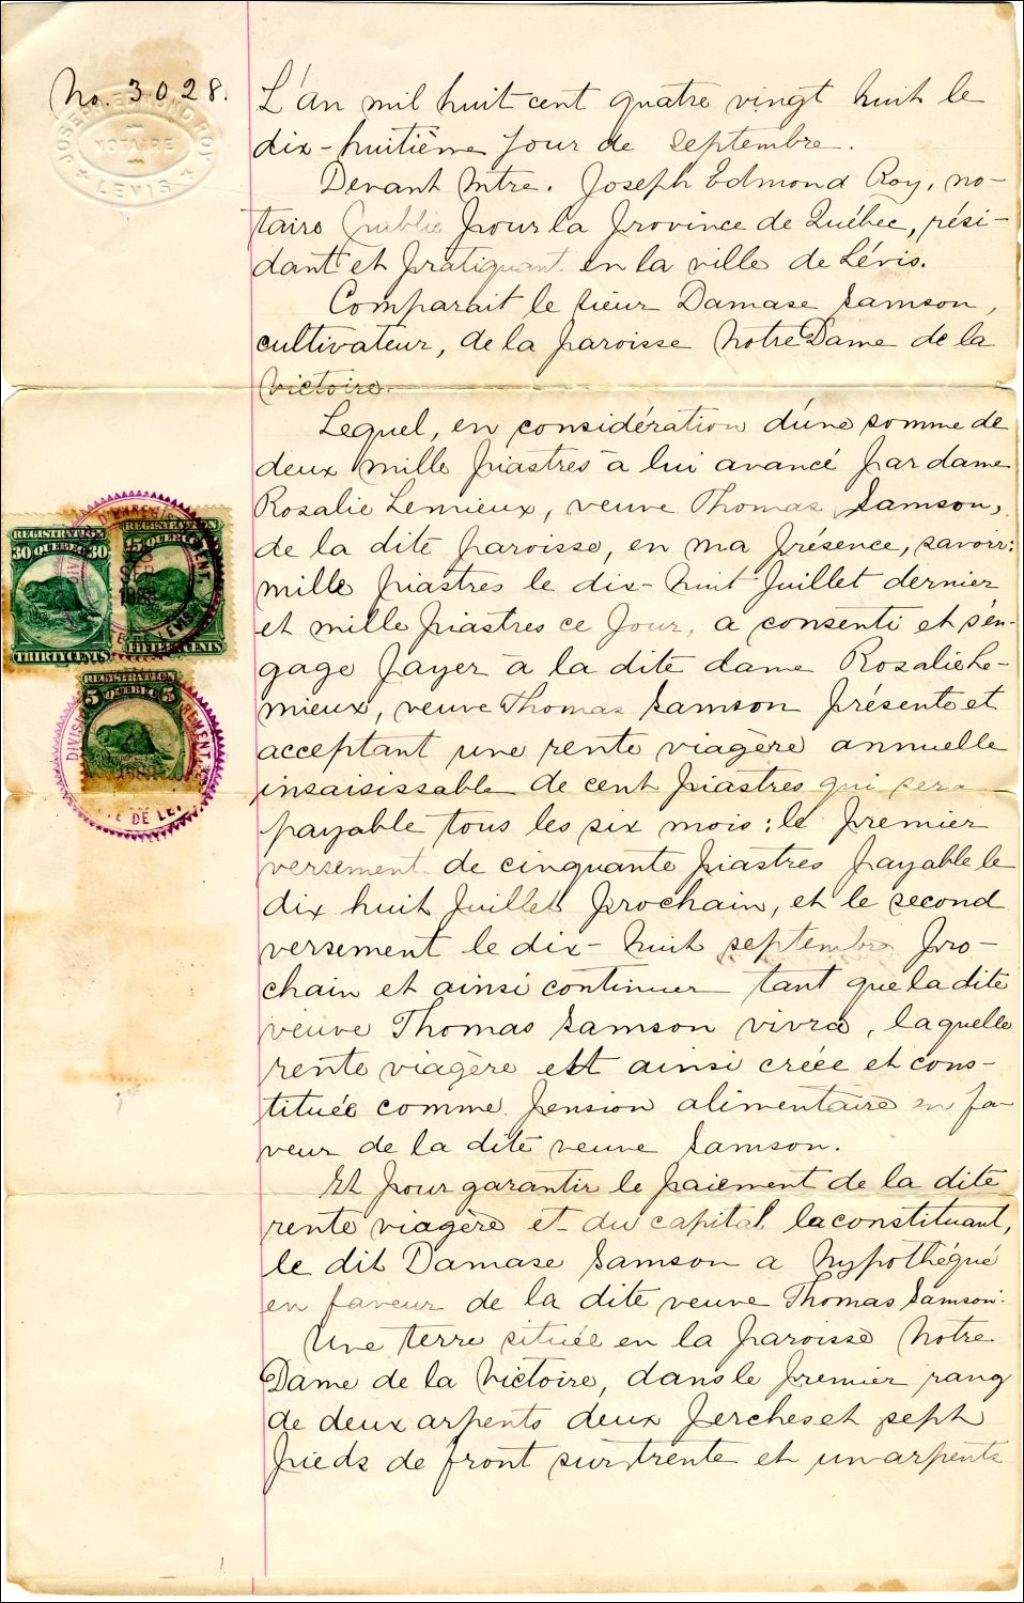 No. 3028.
JOSEPH EDMOND ROY
NOTAIRE
LEVIS
L'an mil huit cent quatre vingt huit le
dix-huitième jour de septembre.
Devant Mtre. Joseph Edmond Roy, no-
taire public pour la province de Québec, rési-
dant et pratiquant en la ville de Lévis.
Comparait le sieur Damase Samson,
cultivateur, de la paroisse Notre Dame de la
Victoire.
Lequel, en considération d'une somme de
deux mille piastres à lui avancé par dame
Rosalie Lemieux, veuve Thomas Samson,
de la dite paroisse, en ma présence, savoir:
mille piastres le dix-huit Juillet dernier
et mille piastres ce jour, a consenti et s'en-
gage payer à la dite dame Rosalie Le-
mieux, veuve Thomas Samson présente et
acceptant une rente viagère annuelle
insaisissable de cent piastres qui sera
payable tous les six mois; le premier
versement de cinquante piastres payable le
dix huit Juillet prochain, et le second
versement le dix-huit septembre pro-
chain et ainsi continuer tant que la dite
veuve Thomas Samson vivra, laquelle
rente viagère est ainsi créée et cons-
tituée comme pension alimentaire en fa-
veur de la dite veuve Samson.
Et pour garantir le paiement de la dite
rente viagère et du capital la constituant,
le dit Damase Samson a hypothéqué
en faveur de la dite veuve Thomas Samson:
Une terre située en la paroisse Notre
Dame de la Victoire, dans le premier rang
de deux arpents deux perches et sept
pieds de front sur trente et un arpents
REGISTRATION
30 QUEBEC 30
THIRTY CENTS
REGISTRATION
15 QUEBEC
FIFTEEN CENTS
D'ENREGISTREMENT.
DE LEVIS
REGISTRATION
5 QUEBEC 5
DIVIS
REMENT.
DE LE